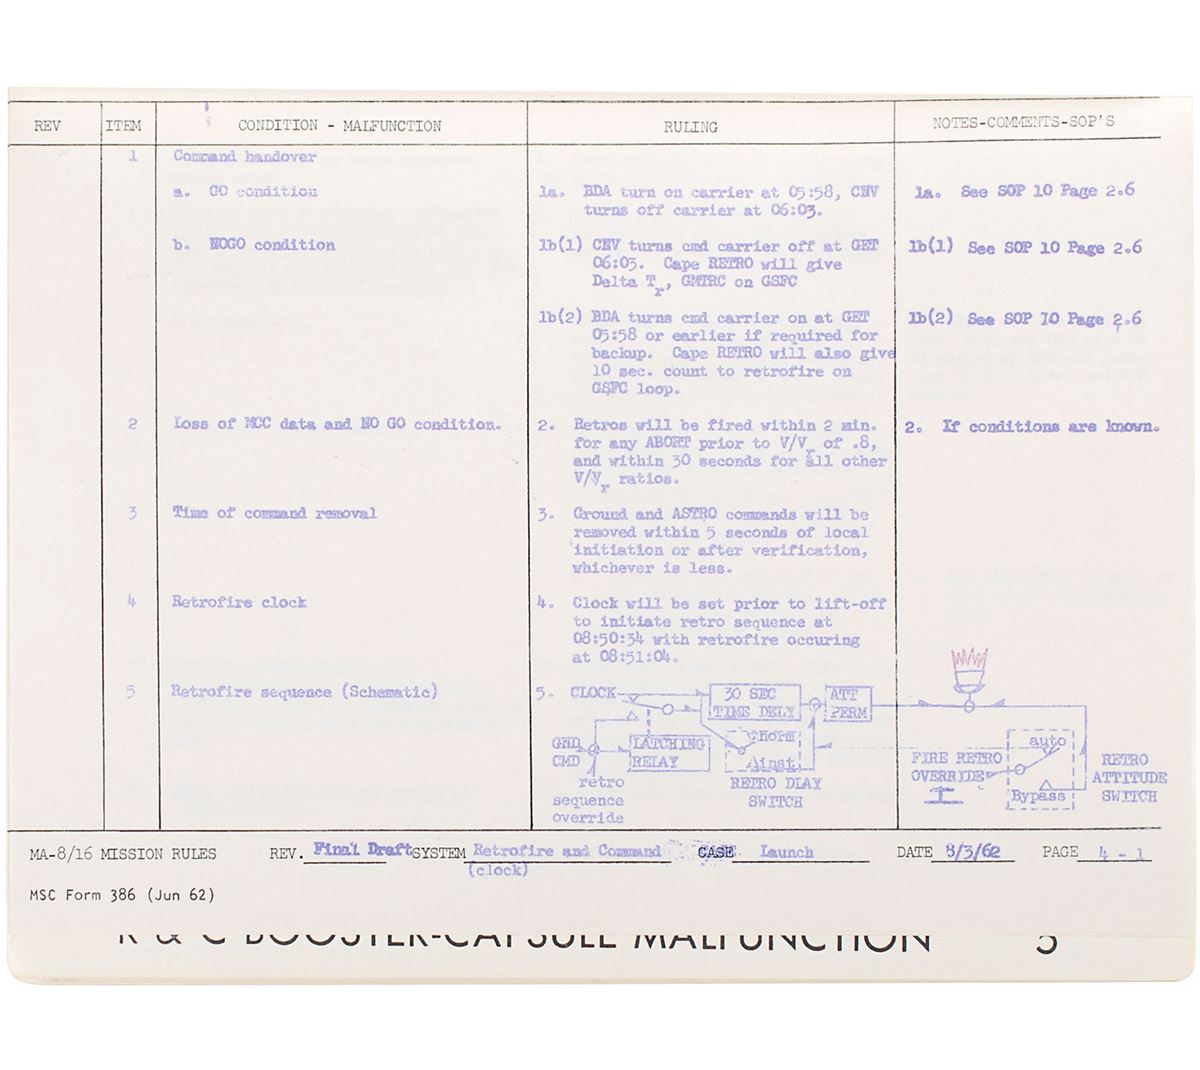 REV ITEM CONDITION - MALFUNCTION RULING NOTES-COMMENTS-SOP'S
1 Command handover
a. GO condition
1a. BDA turn on carrier at 05:58, CNV
turns off carrier at 06:03.
1a. See SOP 10 Page 2.6
b. NOGO condition
1b(1) CNV turns cmd carrier off at GET
06:03. Cape RETRO will give
Delta Tr, GMTRC on GSFC
1b(1) See SOP 10 Page 2.6
1b(2) BDA turns cmd carrier on at GET
05:58 or earlier if required for
backup. Cape RETRO will also give
10 sec. count to retrofire on
GSFC loop.
1b(2) See SOP 10 Page 2.6
2 Loss of MCC data and NO GO condition.
2. Retros will be fired within 2 min.
for any ABORT prior to V/Vr of .8,
and within 30 seconds for all other
V/Vr ratios.
2. If conditions are known.
3 Time of command removal
3. Ground and ASTRO commands will be
removed within 5 seconds of local
initiation or after verification,
whichever is less.
4 Retrofire clock
4. Clock will be set prior to lift-off
to initiate retro sequence at
08:50:34 with retrofire occuring
at 08:51:04.
5 Retrofire sequence (Schematic)
5. CLOCK
30 SEC
TIME DELY
ATT
PERM
GND
CMD
LATCHING
RELAY
norm
inst
retro
sequence
override
RETRO DLAY
SWITCH
FIRE RETRO
OVERRIDE
auto
Bypass
RETRO
ATTITUDE
SWITCH
MA-8/16 MISSION RULES REV. Final Draft SYSTEM Retrofire and Command CASE Launch DATE 8/3/62 PAGE 4 - 1
(clock)
MSC Form 386 (Jun 62)
R & C BOOSTER-CAPSULE MALFUNCTION